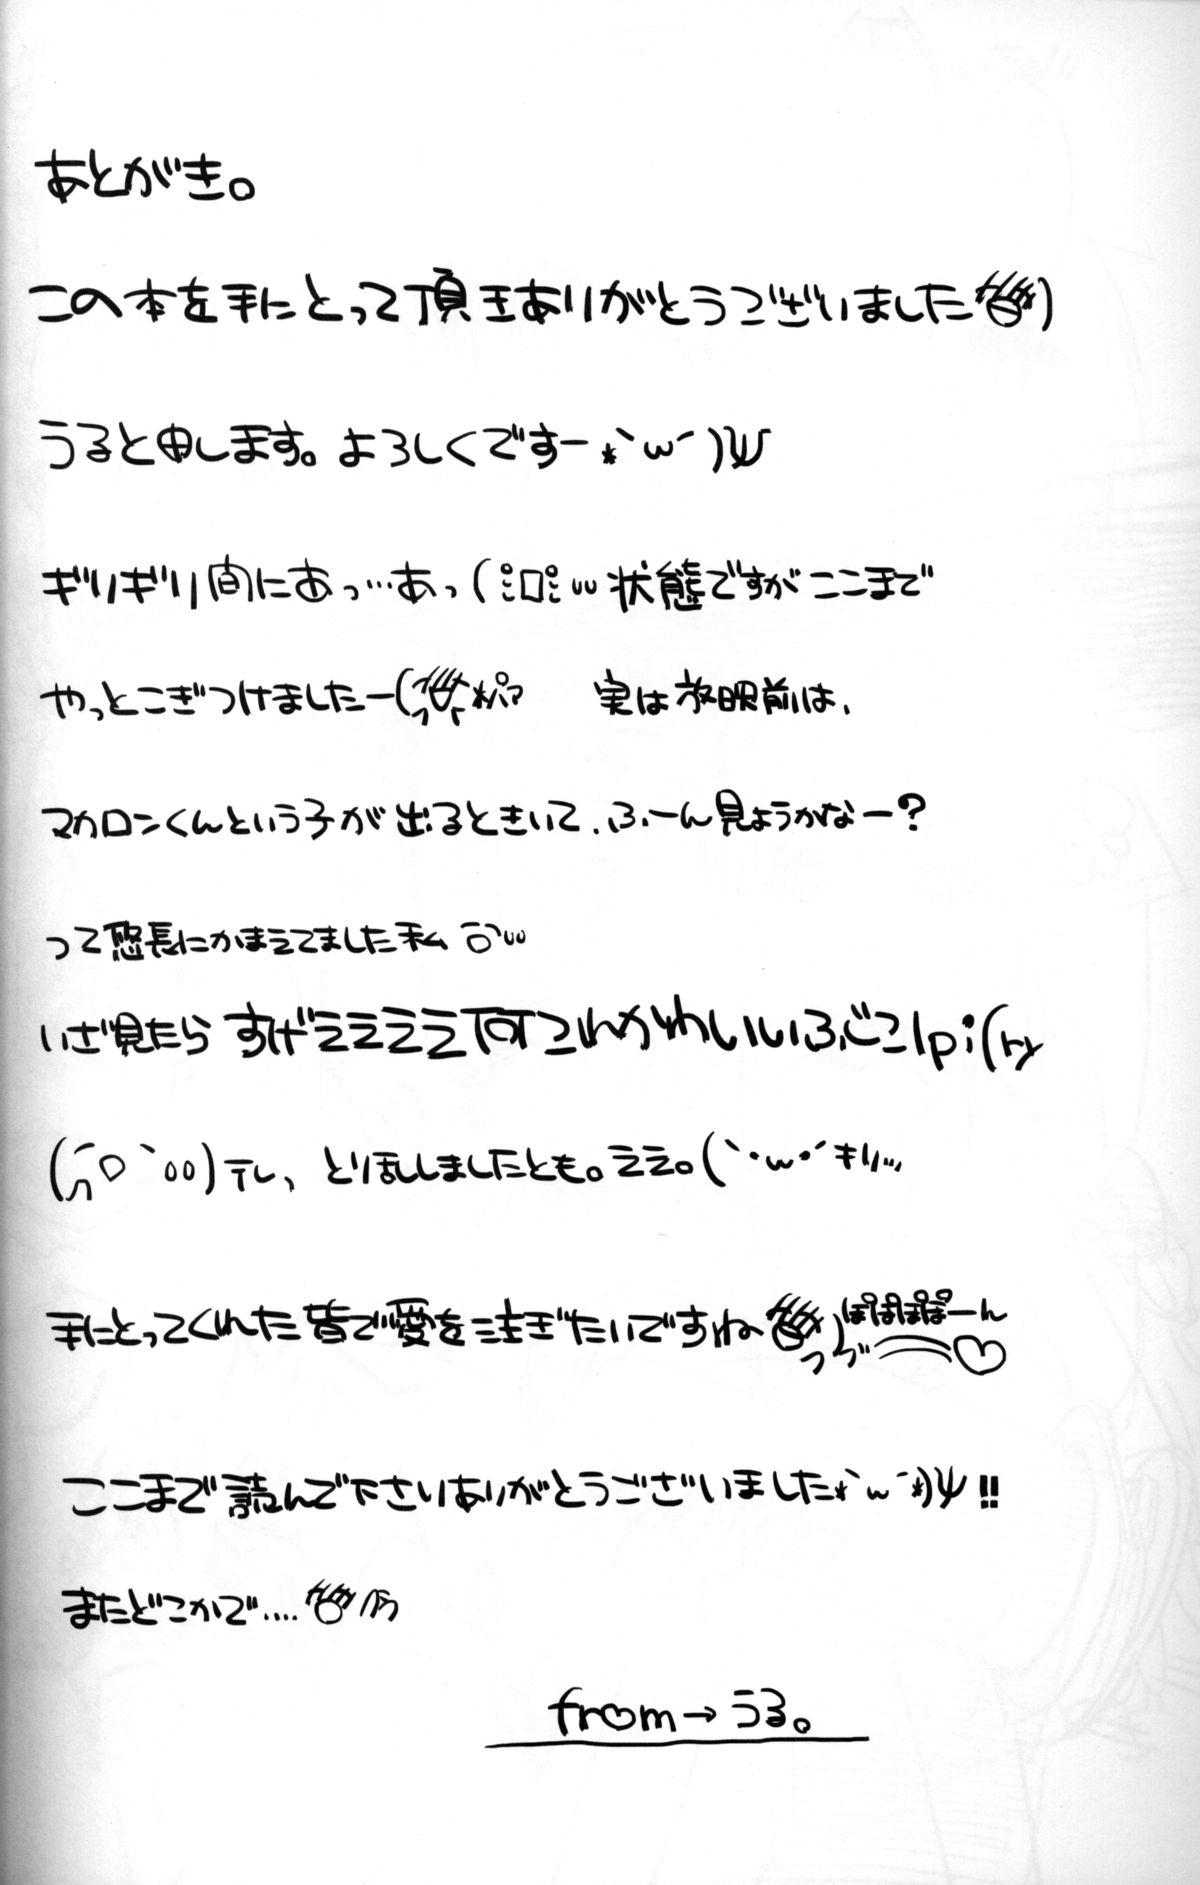 あとがき。
この本を手にとって頂きありがとうございました
うると申します。よろしくですー *`ω´)ψ
ギリギリ間にあっ…あっ( 状態ですがここまで
やっとこぎつけましたー( 実は放映前は、
マカロンくんという子が出るときいて、ふーん見ようかなー?
って悠長にかまえてました私
いざ見たら すげエエエエ何これかわいいいふごこlpi(ry
テレ、とり乱しましたとも。ええ。(`・ω・´キリッ…
手にとってくれた皆で愛を注ぎたいですね ぽぽぽぽーん
ここまで読んで下さりありがとうございました*`ω´*)ψ!!
またどこかで....
from→うる。